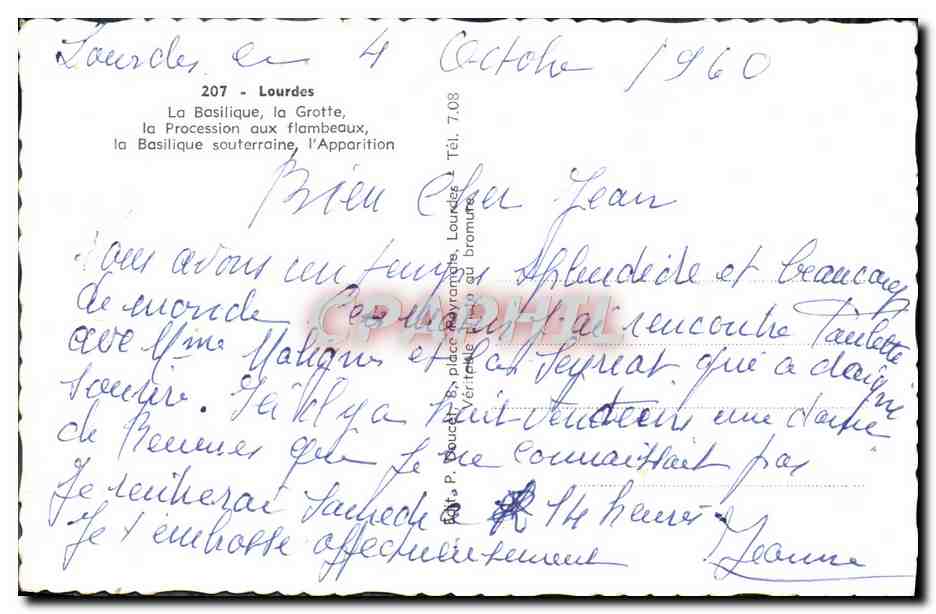 Lourdes en 4 Octobre 1960
207 - Lourdes
La Basilique, la Grotte,
la Procession aux flambeaux,
la Basilique souterraine, l'Apparition
Edit. P. Doucet, 8, place Peyramale, Lourdes - Tél. 7.08
Véritable photo au bromure
CPAPHIL
Bien Cher Jean
Nous avons un temps splendide et beaucoup
de monde j'ai rencontre Paulette
ave Mme et la que a daigné
sourire. Ici il y a huit une dame
de Rennes que je ne connaissait pas
Je rentrerai Samedi a 14 heures.
Je t'embrasse affectueusement Jeanne